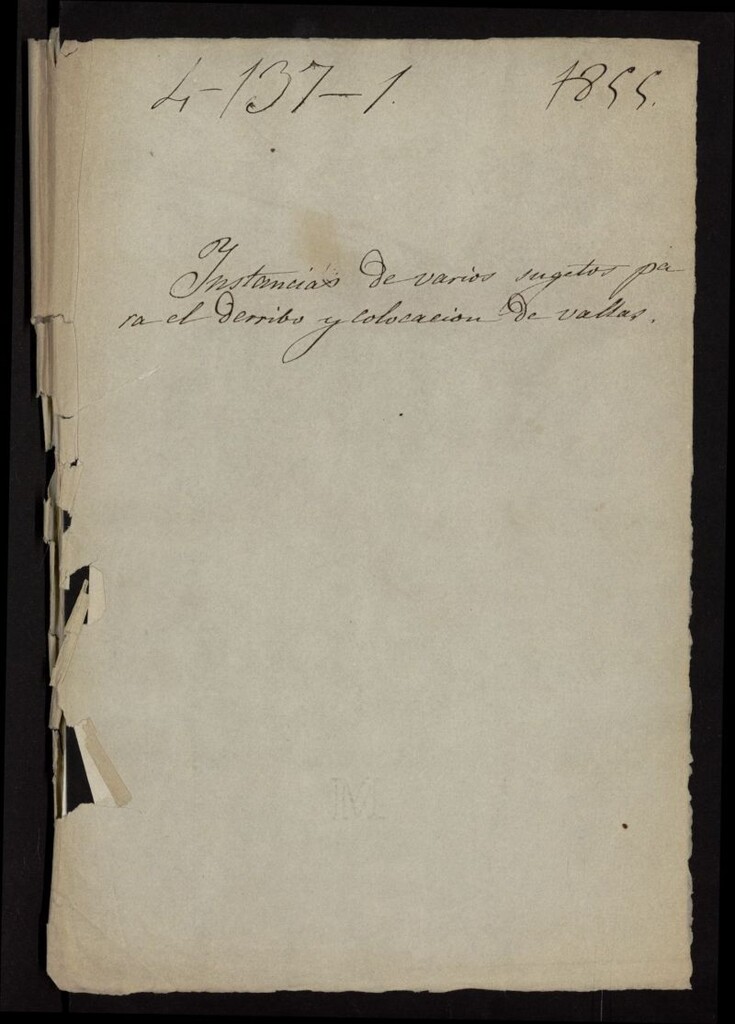 4-137-1. 1855.
Instancias de varios sugetos pa
ra el derribo y colocacion de vallas.